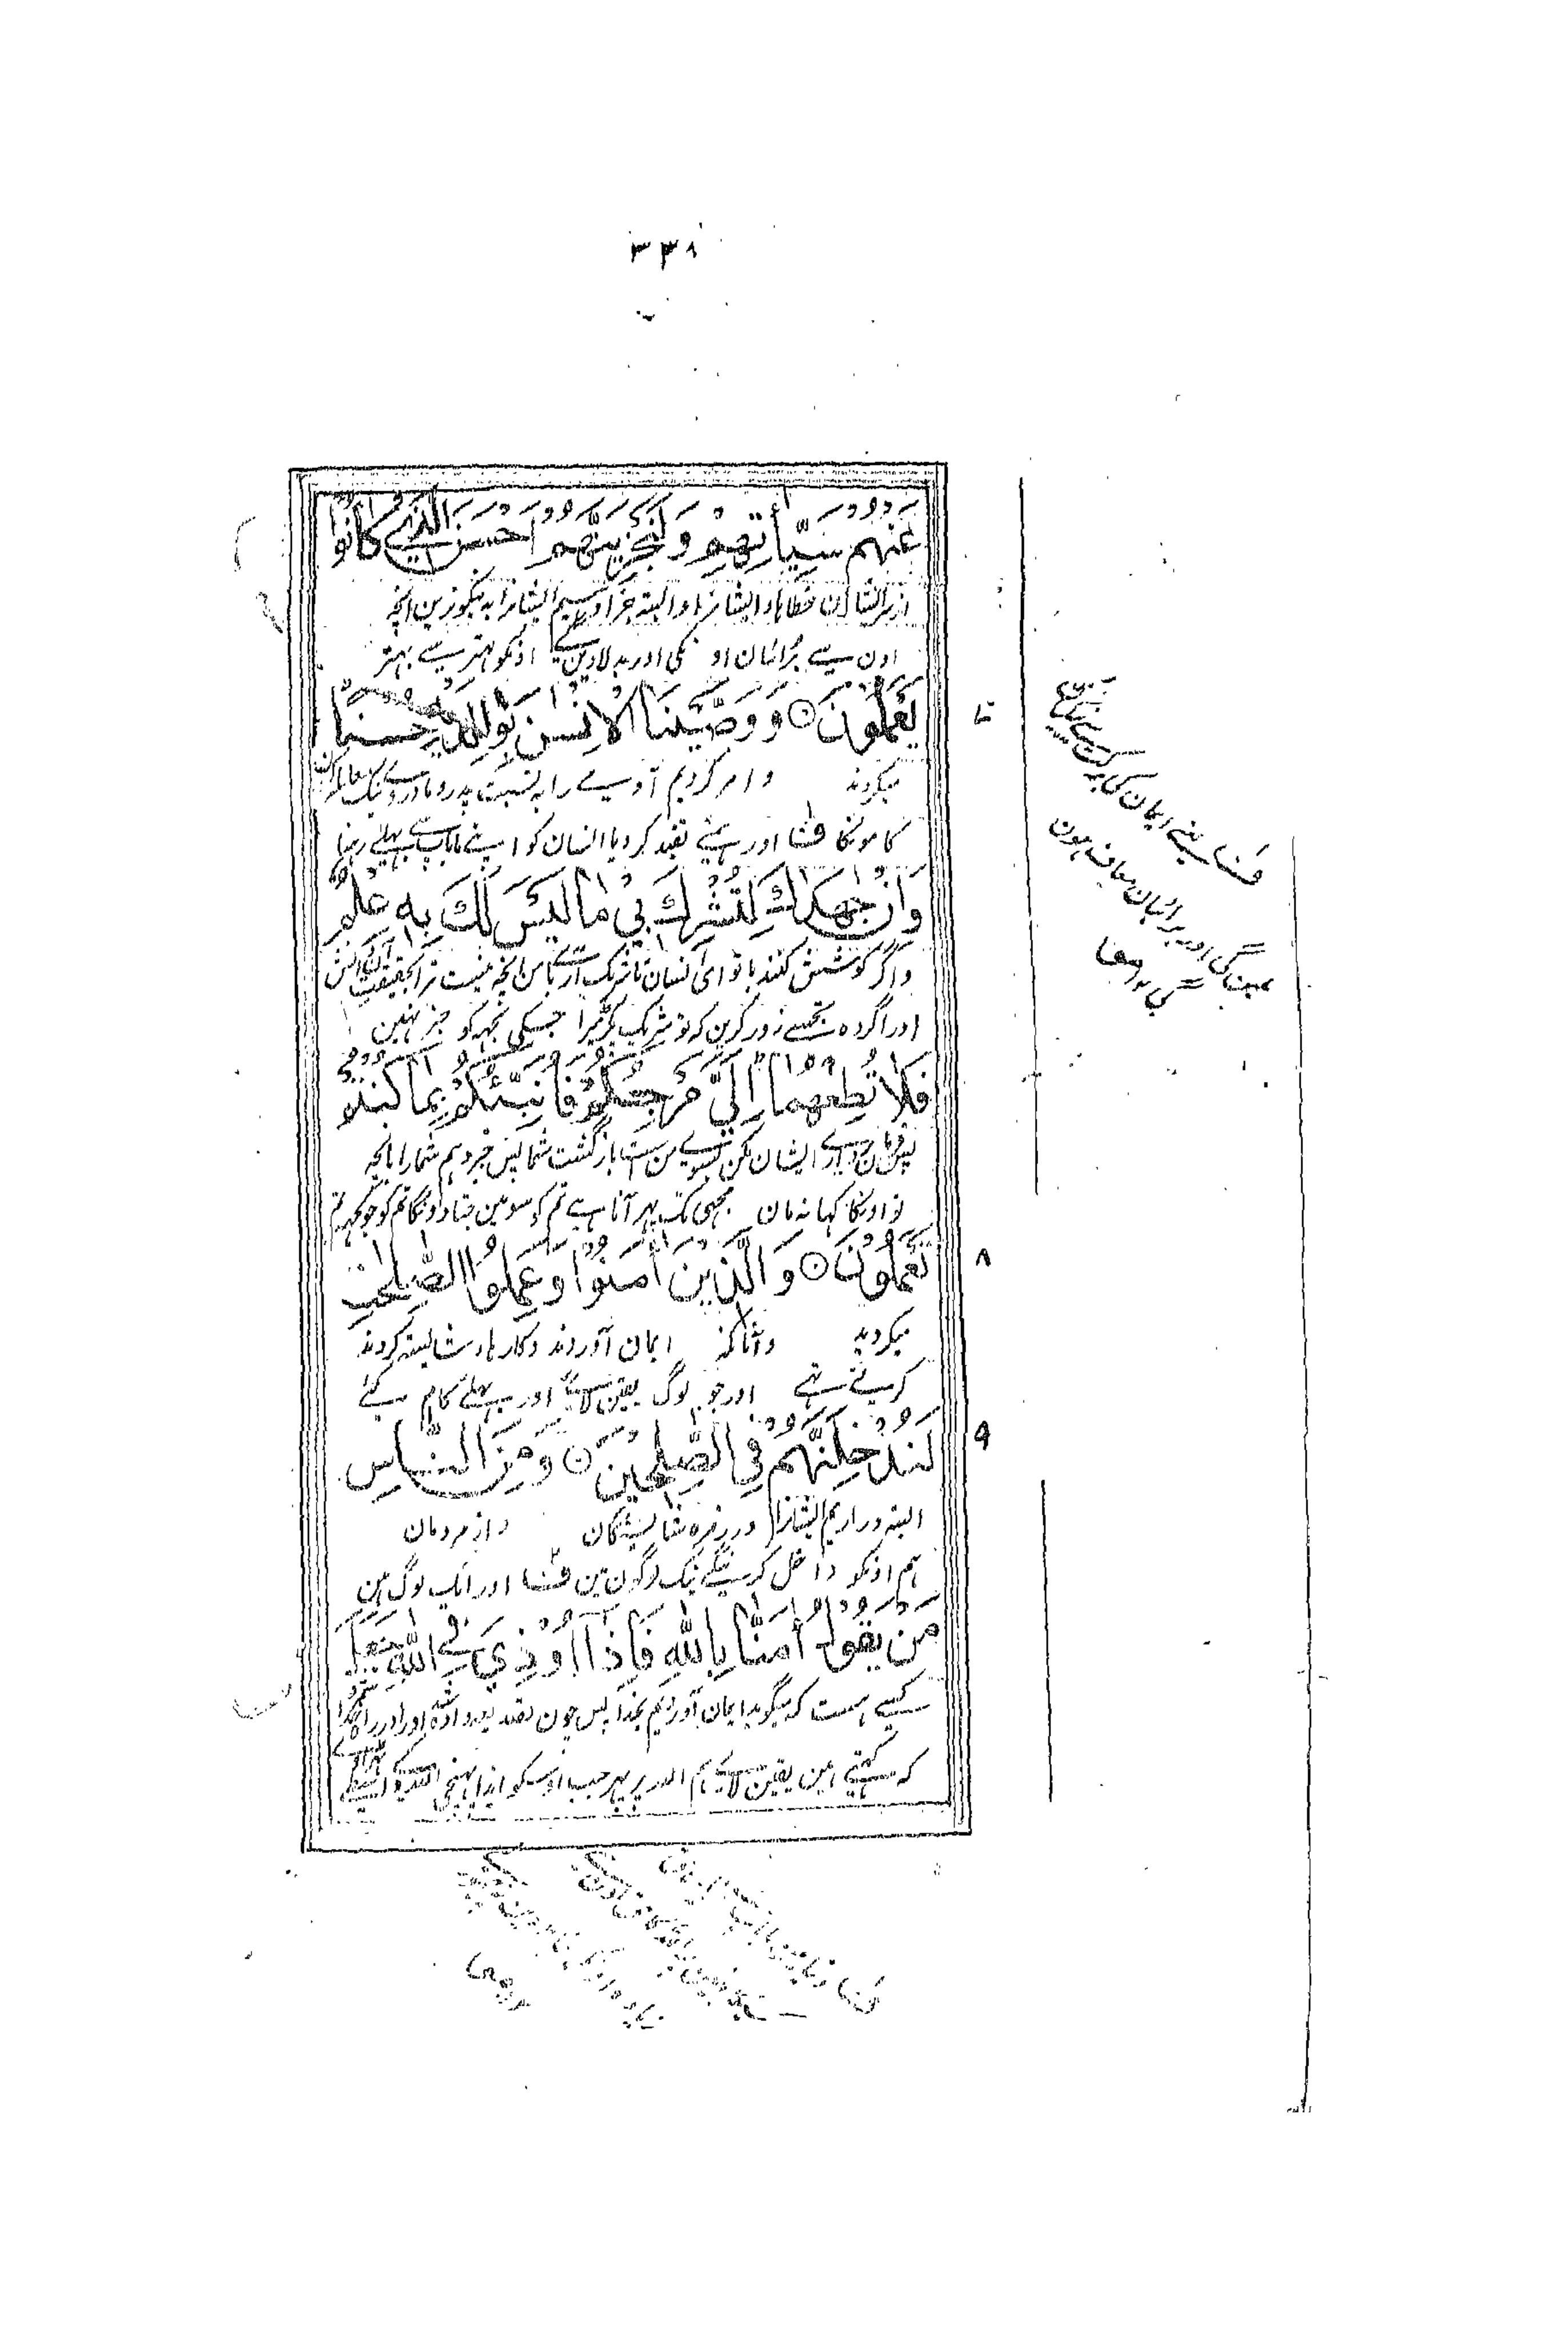 ۳۳۸
عَنْهُمْ سَيِّاٰتِهِمْ وَلَنَجْزِيَنَّهُمْ اَحْسَنَ الَّذِيْ كَانُوْا
ازیشان خطاہا ایشانرا و البتہ جزا دہیم ایشانرا بہ نیکوترین آنچہ
اون سے برائیان اونکی اور بدلا دین گے اونکو بہتر سے بہتر
يَعْمَلُوْنَ ۝ وَوَصَّيْنَا الْاِنْسَانَ بِوَالِدَيْهِ حُسْنًا
۷
میکردند و امر کردیم آدمی را بہ نسبت پدر و مادر وے نیک
کامونکا ف اور ہمنے تقید کر دیا انسان کو اپنے ماباپ سے بہلے رہنا
وَاِنْ جَاهَدٰكَ لِتُشْرِكَ بِيْ مَا لَيْسَ لَكَ بِهٖ عِلْمٌ
و اگر کوشش کنند با تو ای انسان تا شریک آرے با من آنچہ نیست ترا بحقیقت آن دانش
اور اگر وہ تجھسے زور کرین کہ تو شریک پکڑ میرا جسکی تجہکو خبر نہین
فَلَا تُطِعْهُمَا اِلَيَّ مَرْجِعُكُمْ فَاُنَبِّئُكُمْ بِمَا كُنْتُمْ
پس فرمان برداری ایشان مکن بسوے من است بازگشت شما پس خبر دہم شما را بآنچہ
تو اونکا کہا نہ مان مجہی تک پہر آنا ہے تم کو سو مین جتا دونگا تم کو جو کچہہ تم
تَعْمَلُوْنَ ۝ وَالَّذِيْنَ اٰمَنُوْا وَعَمِلُوا الصّٰلِحٰتِ
۸
میکردید و آنانکہ ایمان آوردند و کارہاے شایستہ کردند
کرتے تہے اور جو لوگ یقین لائے اور بہلے کام کئے
لَنُدْخِلَنَّهُمْ فِي الصّٰلِحِيْنَ ۝ وَمِنَ النَّاسِ
۹
البتہ در آریم ایشانرا در زمرہ شایستگان و از مردمان
ہم اونکو داخل کرینگے نیک لوگون مین ف اور ایک لوگ ہین
مَنْ يَّقُوْلُ اٰمَنَّا بِاللّٰهِ فَاِذَا اُوْذِيَ فِي اللّٰهِ جَعَلَ
کسے ہست کہ میگوید ایمان آوردیم بخدا پس چون تصدیعہ دادہ شد او را در راہ خدا
کہ کہتے ہین یقین لائے ہم اللہ پر پہر جب اوسکو ایذا پہنچی اللہ کے واسطے
ف یعنے ایمان کی برکت سے نیکی
گی اور برائیان معاف ہون
گی